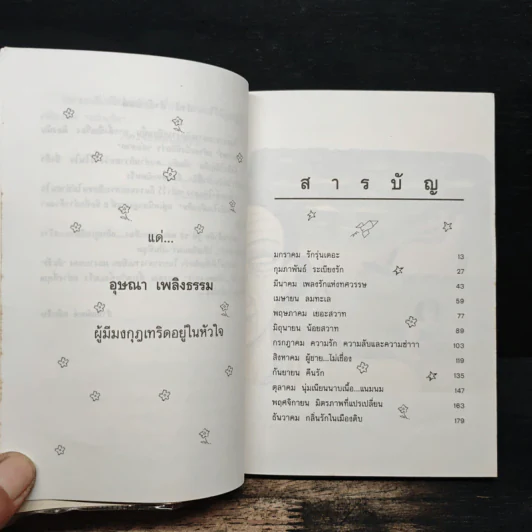 แด่...
อุษณา เพลิงธรรม
ผู้มีมงกุฎเทริดอยู่ในหัวใจ
สารบัญ
มกราคม รักรุ่นเดอะ 13
กุมภาพันธ์ ระเบียงรัก 27
มีนาคม เพลงรักแห่งทศวรรษ 43
เมษายน ลมทะเล 59
พฤษภาคม เยอะสวาท 77
มิถุนายน น้อยสวาท 89
กรกฎาคม ความรัก ความลับและความฮ่าาา 103
สิงหาคม ผู้ชาย...ไม่เชื่อง 119
กันยายน คืนรัก 135
ตุลาคม นุ่มเนียนนาบเนื้อ...แนมนม 147
พฤศจิกายน มิตรภาพที่แปรเปลี่ยน 163
ธันวาคม กลิ่นรักในเมืองดิบ 179